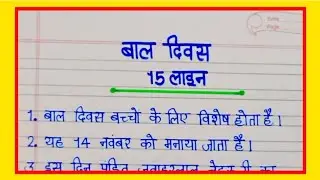 बाल दिवस
15 लाइन
1. बाल दिवस बच्चो के लिए विशेष होता है।
2. यह 14 नवंबर को मनाया जाता है।
3 इस दिन पंडित जवाहरलाल नेहरू जी का